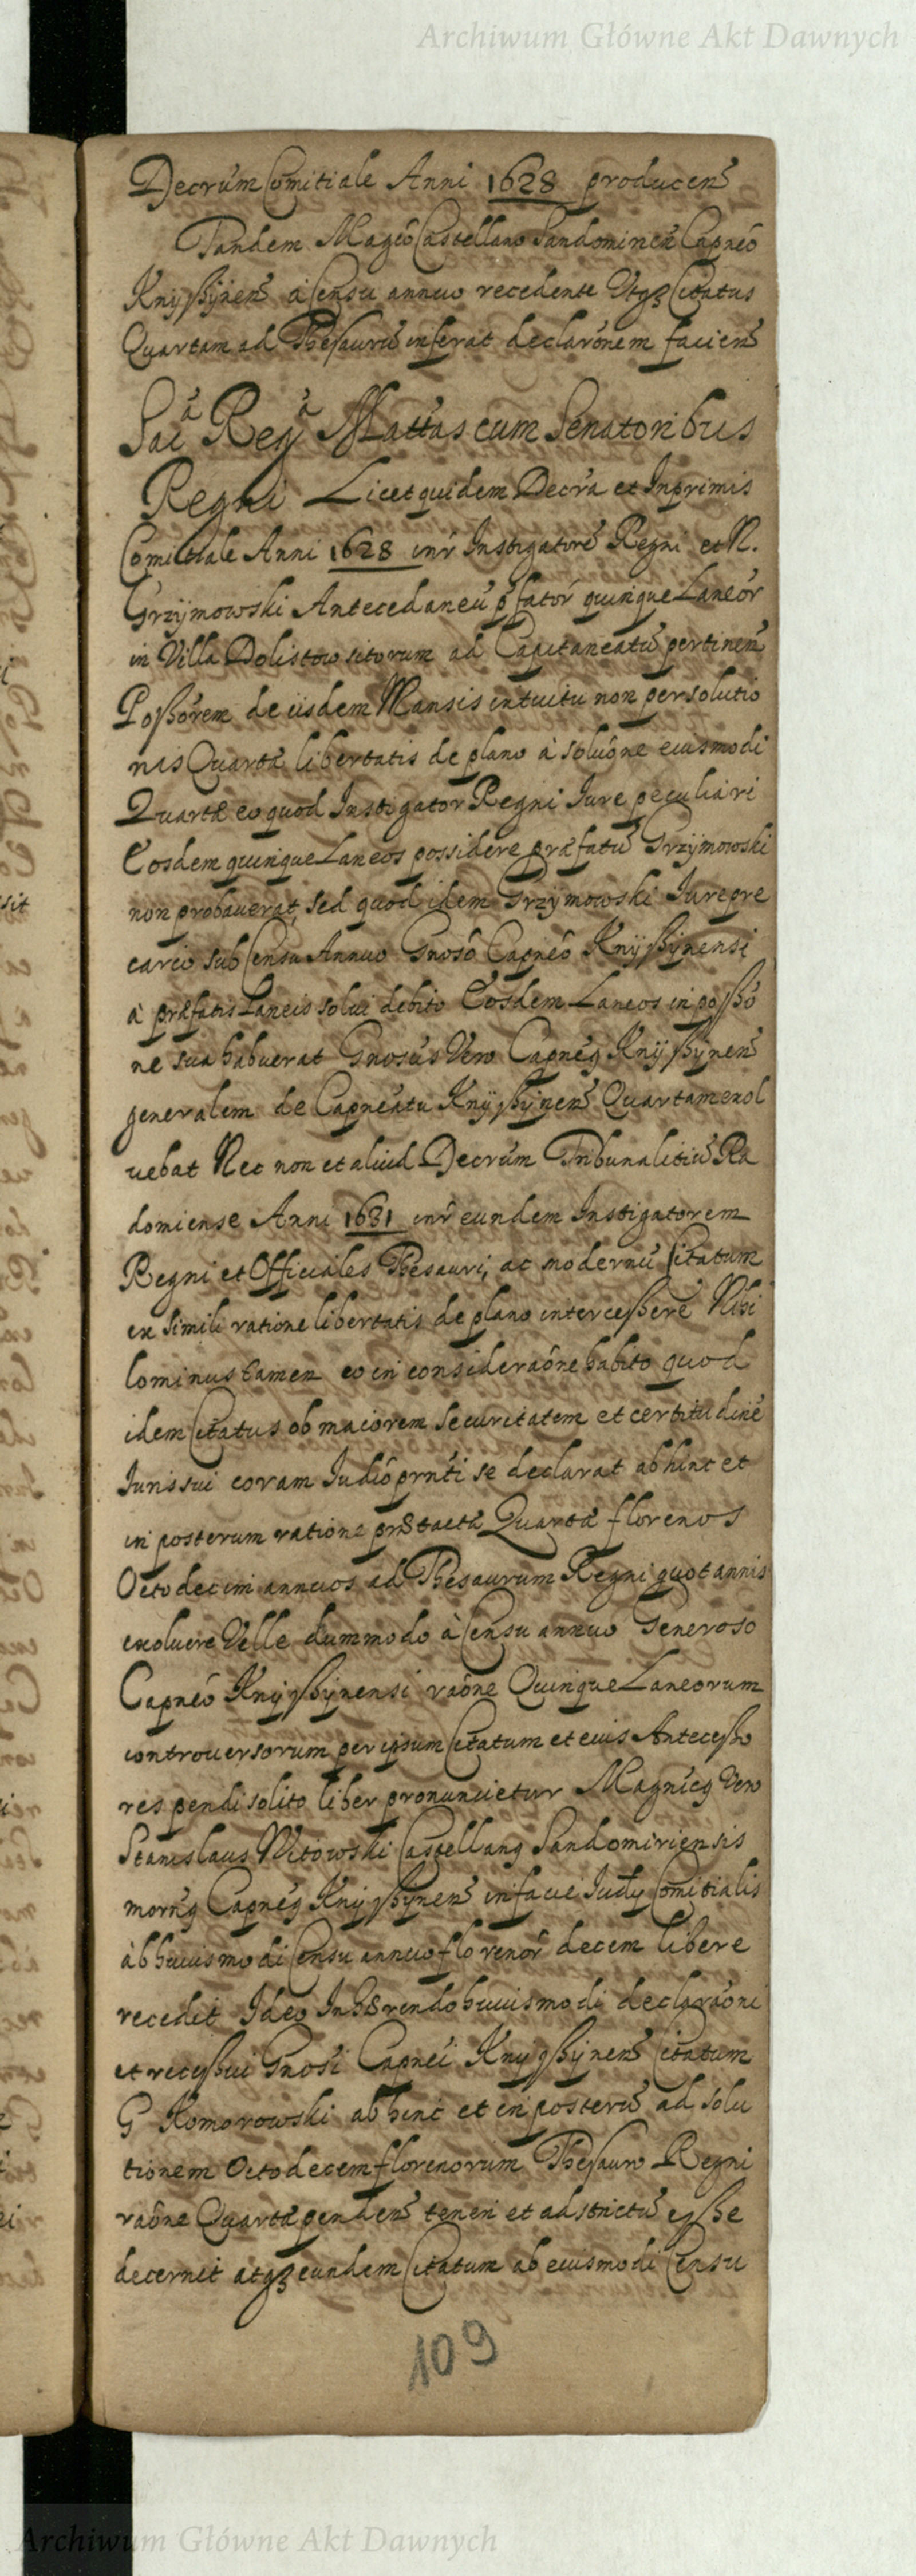 Archiwum Główne Akt Dawnych
Decrum Comitiale Anni 1628 producen
Tandem Magco Castellano Sandomirien Capneo
Knyßÿnen à Censu annuo recedente Utqz Citatus
Quartam ad Thesaurũ inferat declarõnem facien
Saa Regã Mattas cum Senatoribus
Regni Licet quidem Decra et Inprimis
Comitiale Anni 1628 inr Instigatorẽ Regni et N.
Grzÿmowski Antecedaneũ pfatór quinque Laneór
in Villa Dolistow sitorum ad Capitaneatũ pertinen
Poßõrem de iisdem Mansis intuitu non persolutio
nis Quartæ libertatis de plano à soluõne eiusmodi
Quartæ eo quod Instigator Regni Jure peculiari
Eosdem quinque Laneos possidere præfatũ Grzÿmowski
non probauerat, sed quod idem Grzÿmowski Jure pre
cario sub Censu Annuo Gnoso Capneo Knÿßÿnensi
à præfatis Laneis solui debito Eosdem Laneos in poßõ
ne sua habuerat Gnosus Vero Capneq Knÿßÿnen
generalem de Capneatu Knÿßÿnen Quartam exol
uebat Nec non et aliud Decrum Tribunalitiũ Ra
domiense Anni 1631 inr eundem Instigatorem
Regni et Officiales Thesauri, ac modernũ Citatum
ex simili ratione libertatis de plano interceßerẽ Nihi
lominus tamen eo in consideraõne habito quod
idem Citatus ob maiorem securitatem et certitudinẽ
Juris sui coram Judiõ prnti se declarat abhinc et
in posterum ratione præstactæ Quartæ florenos
Octodecim annuos ad Thesaurum Regni quotannis
exoluere Velle dummodo à Censu annuo Generoso
Capneo Knyßÿnensi raõne Quinque Laneorum
controuersorum per ipsum Citatum et eius Anteceßo
res pendi solito liber pronuncietur Magnicq Vero
Stanislaus Witowski Castellanq Sandomiriensis
mornq Capneq Knyßÿnen in facie Judÿ Comitialis
àb huiusmodi Censu annuo florenór decem libere
recedit Ideo Inhærendo huiusmodi declaraõni
et receßui Gnosi Capnei Knyßÿnen Citatum
G Komorowski abhinc et in posterũ ad solu
tionem Octodecem florenorum Thesauro Regni
raõne Quartæ penden teneri et adstrictũ eße
decernit atqz eundem Citatum ab eiusmodi Censu
109
Archiwum Główne Akt Dawnych